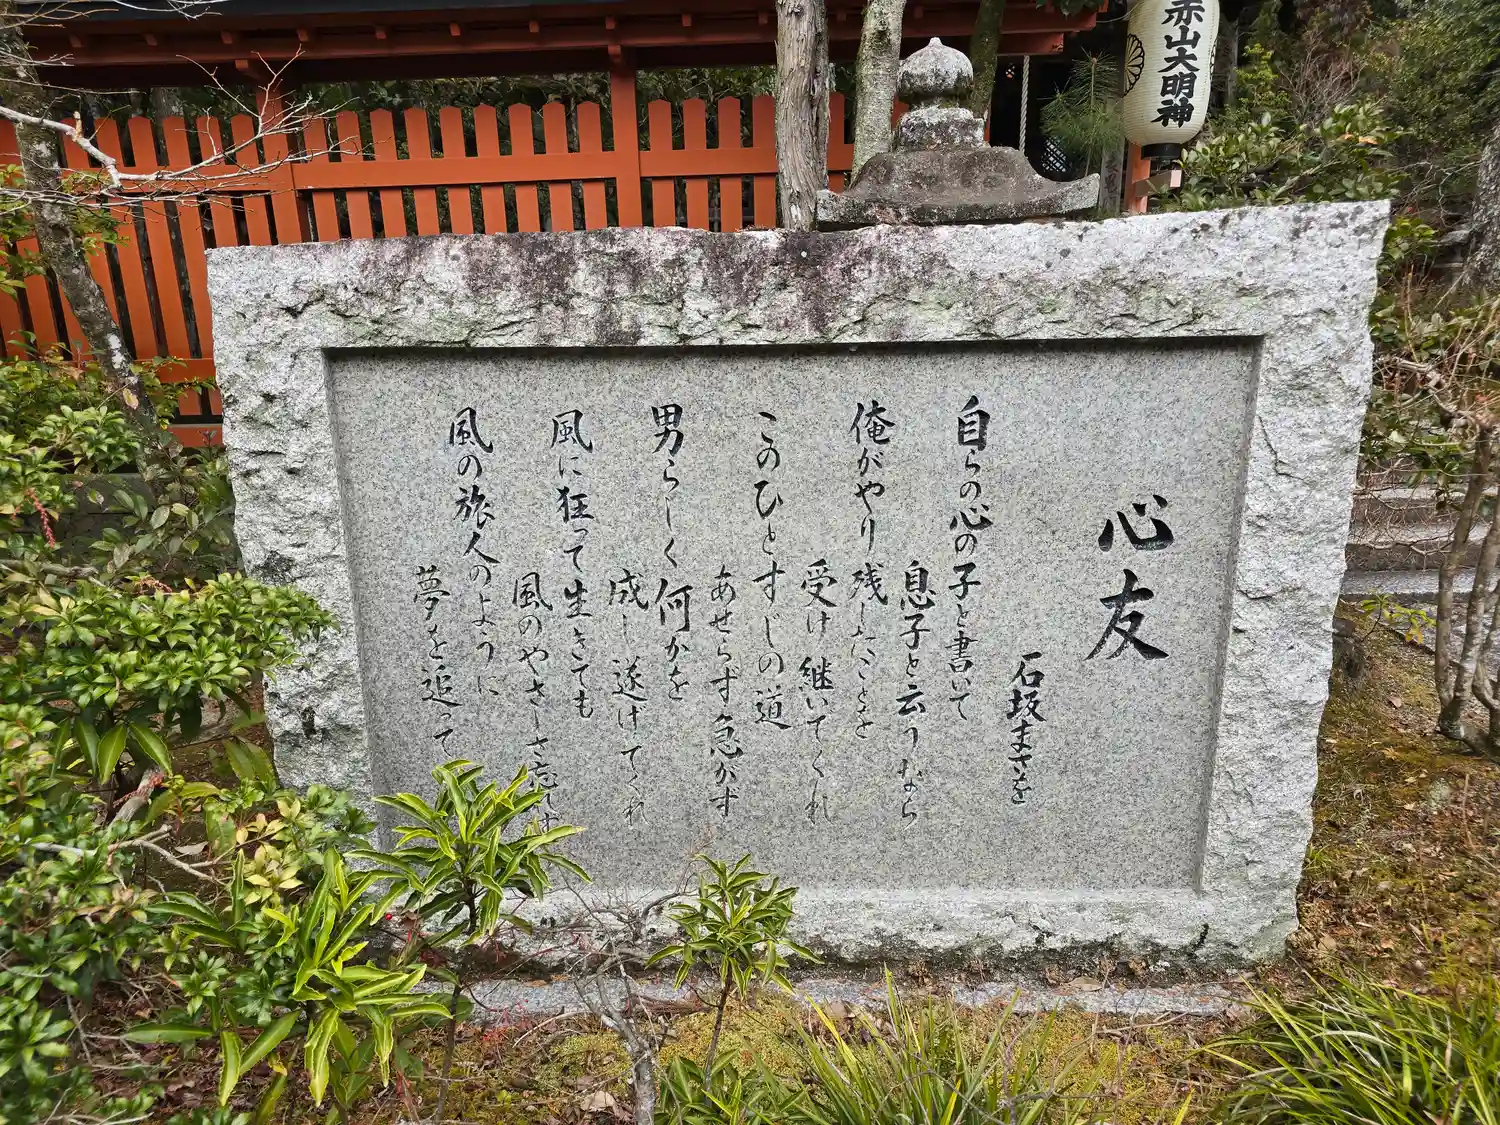 赤山大明神
心友
石坂まさを
自らの心の子と書いて
息子と云うなら
俺がやり残したことを
受け継いでくれ
このひとすじの道
あせらず急がず
男らしく何かを
成し遂げてくれ
風に狂って生きても
風のやさしさ忘れず
風の旅人のように
夢を追って